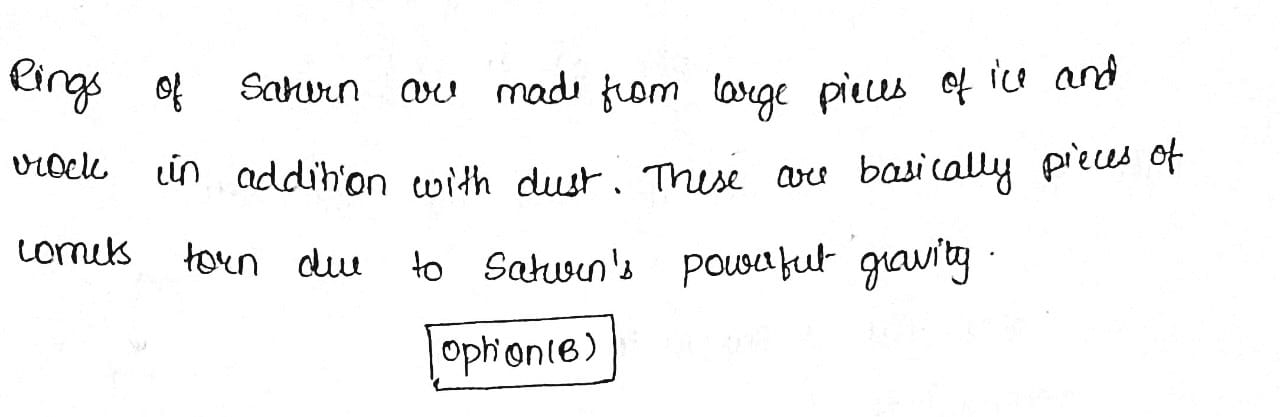 Rings of Saturn are made from large pieces of ice and
rock in addition with dust. These are basically pieces of
comets torn due to Saturn's powerful gravity.
option(B)